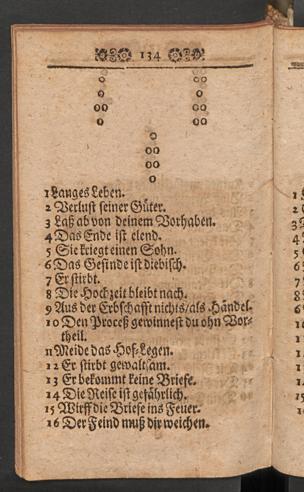 134
1 Langes Leben.
2 Verlust seiner Güter.
3 Laß ab von deinem Vorhaben.
4 Das Ende ist elend.
5 Sie kriegt einen Sohn.
6 Das Gesinde ist diebisch.
7 Er stirbt.
8 Die Hochzeit bleibt nach.
9 Aus der Erbschafft nichts/als Händel.
10 Den Proceß gewinnest du ohn Vor-
theil.
11 Meide das Hof-Legen.
12 Er stirbt gewaltsam.
13 Er bekommt keine Briefe.
14 Die Reise ist gefährlich.
15 Wirff die Briefe ins Feuer.
16 Der Feind muß dir weichen.